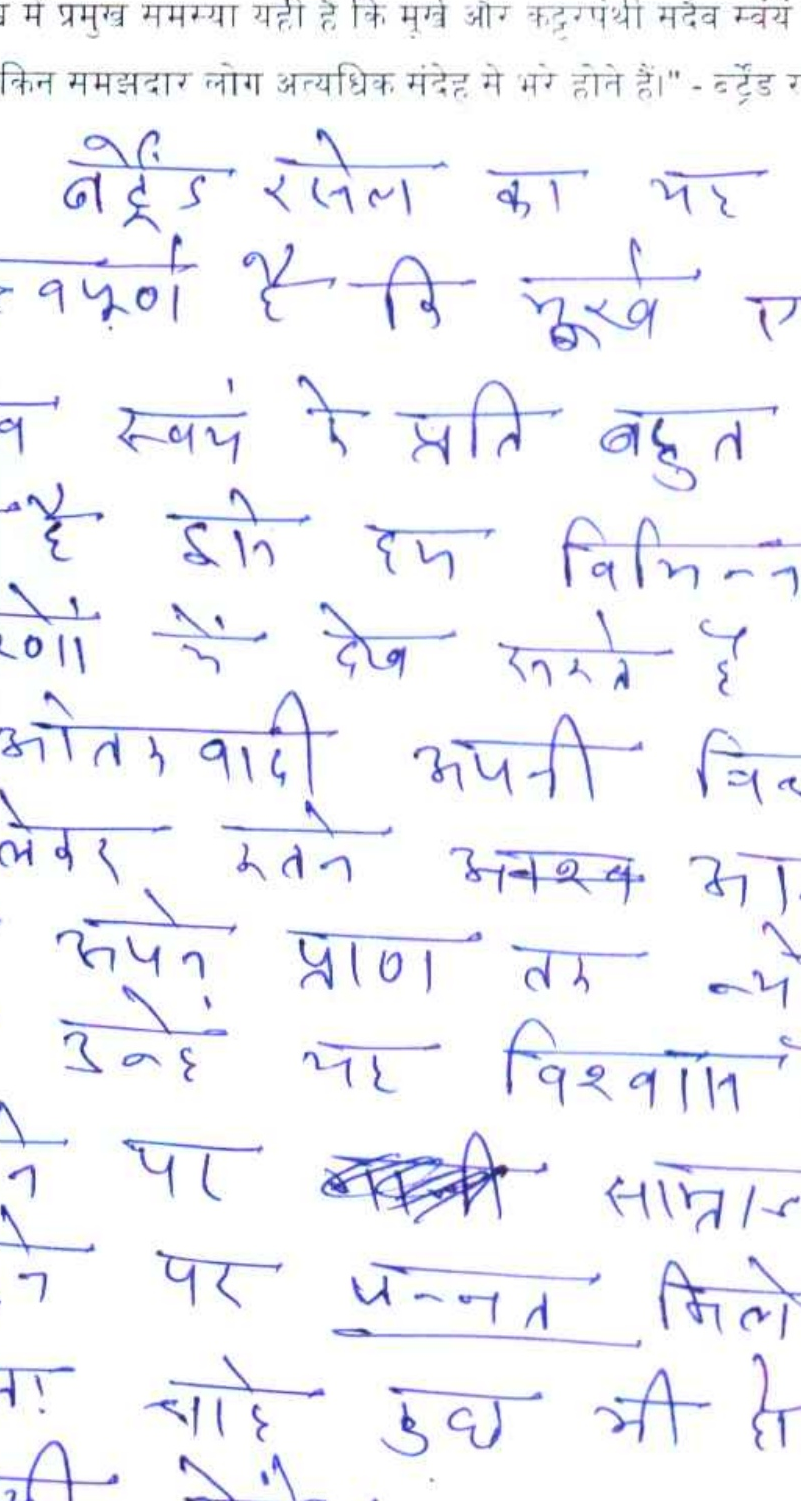 में प्रमुख समस्या यही है कि मूर्ख और कट्टरपंथी सदैव स्वयं
किन समझदार लोग अत्यधिक संदेह से भरे होते हैं।" - बर्ट्रेंड
बर्ट्रेंड रसेल का यह
वपूर्ण है कि मूर्ख ए
व स्वयं के प्रति बहुत
है इसे हम विभिन्न
रणों में देख सकते है
आतंकवादी अपनी
लेकर इतने आ
अपने प्राण तक
उन्हें यह विश्वास
ने पर साम्राज्
ने पर जन्नत मिले
चाहे कुछ भी हो